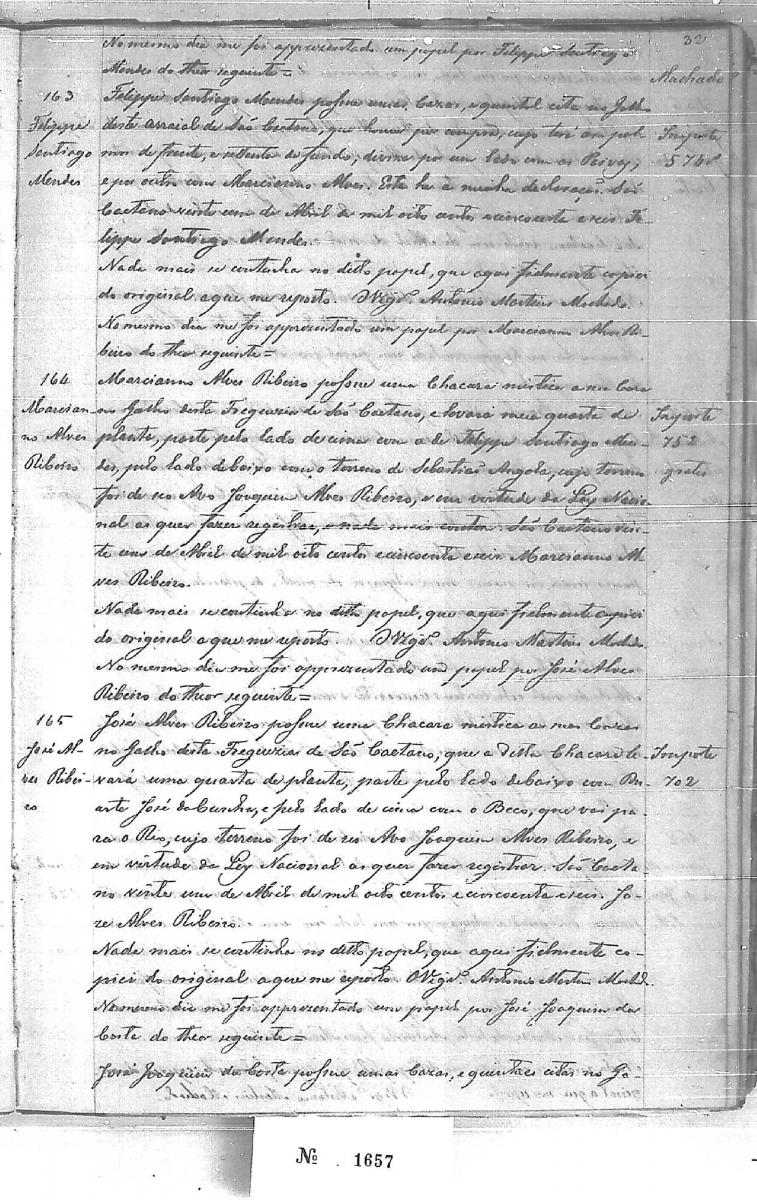 32
Machado
No mesmo dia me foi apprezentado um papel por Felippe Santiago
Mendes do theor seguinte=
163
Felippe
Santiago
Mendes
Felippe Santiago Mendes possue umas Cazas, e quintal citas no Galho
deste arraial de São Caetano, que houve por compra, cujo tem cem pal-
mos de frente, e settenta de fundo; diviza por um lado com os
e por outro com Marcianno Alves. Esta he a minha declaração. São
Caetano vinte um de Abril de mil oito centos e cincoenta e seis. Fe-
lippe Santiago Mendes.
Importe
574
Nada mais se continha no ditto papel, que aqui fielmente copiei
do original a que me reporto. O Vigrº. Antonio Martins Machado.
No mesmo dia me foi apprezentado um papel por Marcianno Alves Ri-
beiro do theor seguinte=
164
Marcian-
no Alves
Ribeiro
Marcianno Alves Ribeiro possue uma Chacara mistica a sua Caza
no Galho desta Freguezia de São Caetano, e levará meia quarta de
planta, parte pelo lado de cima com a de Felippe Santiago Men-
des, pelo lado debaixo com o terreno de Sebastião Angola, cujo terreno
foi de seo Avo Joaquim Alves Ribeiro, e em virtude da Ley Nacio-
nal as quer fazer registrar, e nada mais contou. São Caetano vin-
te um de Abril de mil oito centos e cincoenta e seis. Marcianno Al-
ves Ribeiro.
Importe
752
gratis
Nada mais se continha no ditto papel, que aqui fielmente copiei
do original a que me reporto. O Vigrº. Antonio Martins Machado.
No mesmo dia me foi apprezentado um papel por José Alves
Ribeiro do theor seguinte=
165
José Al-
ves Ribei-
ro
José Alves Ribeiro possue uma Chacara mistica as suas Cazas
no Galho desta Freguezia de São Caetano, que a ditta Chacara le-
vará uma quarta de planta, parte pelo lado debaixo com Du-
arte José da Cunha, e pelo lado de cima com o Beco, que vai pa-
ra o Rio, cujo terreno foi de seo Avo Joaquim Alves Ribeiro, e
em virtude da Ley Nacional as quer fazer registrar. São Caeta-
no vinte um de Abril de mil oito centos e cincoenta e seis. Jo-
ze Alves Ribeiro.
Importe
702
Nada mais se continha no ditto papel, que aqui fielmente co-
piei do original a que me reporto O Vigrº. Antonio Martins Machdº.
No mesmo dia me foi apprezentado um papel por José Joaquim da
Costa do theor seguinte=
José Joaquim da Costa possue umas Cazas, e quintaes citas no Ga-
Nº 1657